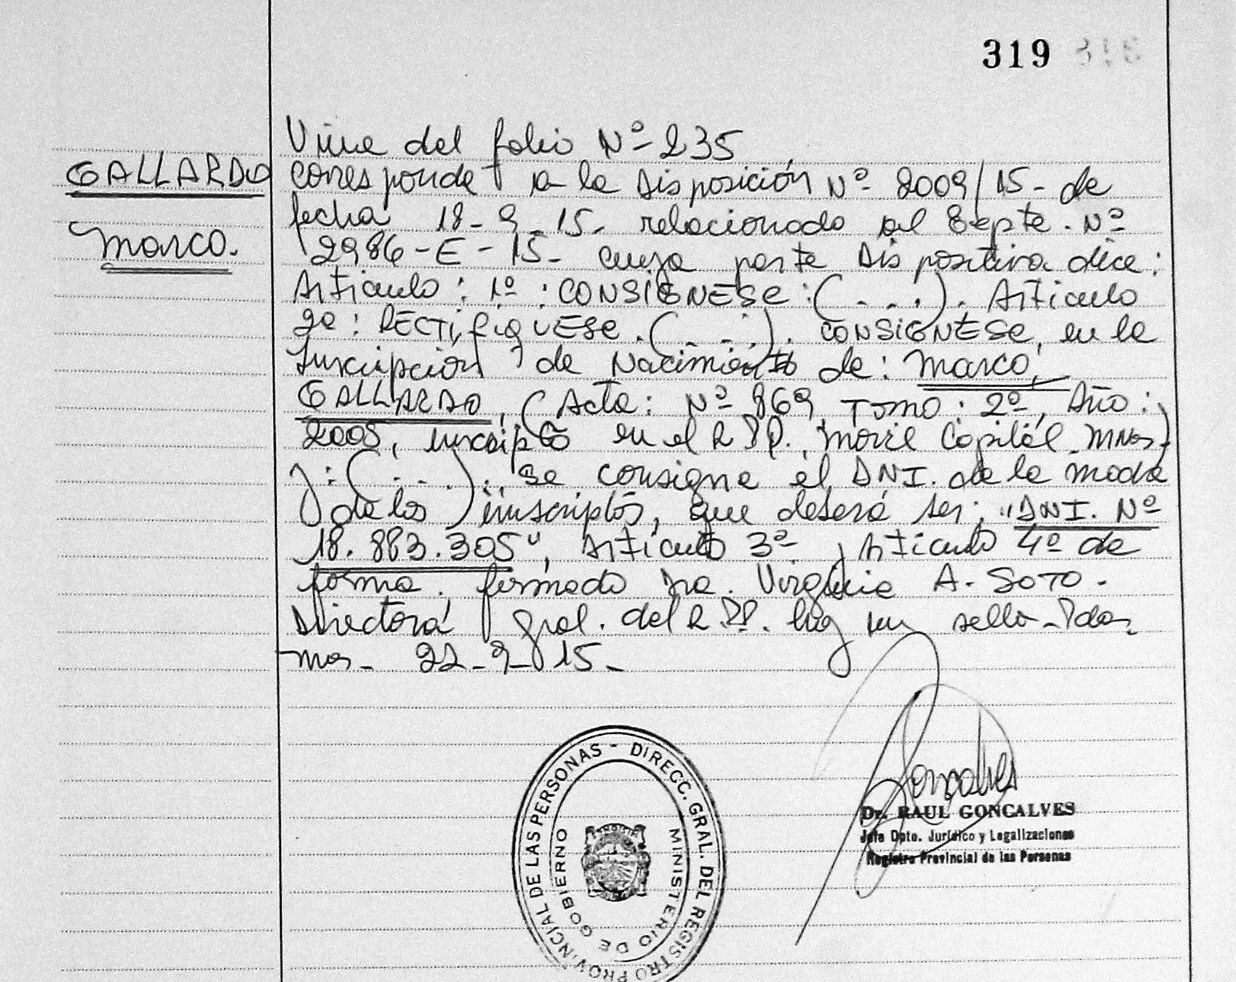 319
Viene del folio Nº 235
GALLARDO
Marco.
corresponde a la Disposición Nº 2009/15- de
fecha 18-9-15- relacionado al Expte. Nº
2986-E-15- cuya parte Dispositiva dice:
Artículo: 1º: CONSIGNESE: (...). Artículo
2º: RECTIFIQUESE. (...). CONSIGNESE, en la
Inscripción de Nacimiento de: Marco
GALLARDO, (Acta: Nº 869, Tomo: 2º, Año:
inscripto en el R.P.P. Movil Capital Mnes.
): (...). se consigne el DNI. de la madre
de los inscriptos, que deberá ser: "DNI. Nº
18.883.305", Artículo 3º, Artículo 4º de
forma. firmado Virginia A. SOTO.
Directora Gral. del R.P.P. hay un sello-Pdas.
Mnes- 22-9-15-
DIRECC. GRAL. DEL REGISTRO PROVINCIAL DE LAS PERSONAS -
MINISTERIO DE GOBIERNO
Goncalves
Dr. RAUL GONCALVES
Jefe Dpto. Jurídico y Legalizaciones
Registro Provincial de las Personas